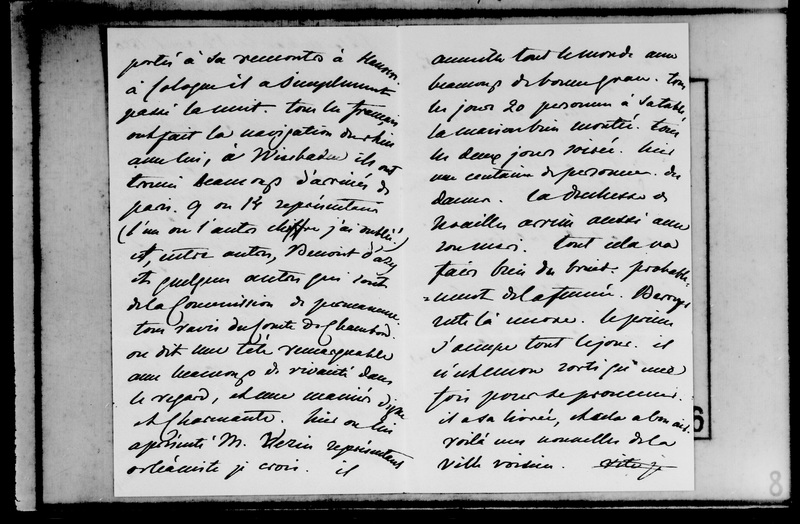 portés à sa rencontre à
à Cologne il a simplement
passé la nuit. tous les français
ont fait la navigation du rhin
avec lui, à Wiesbaden ils ont
trouvé beaucoup d'arrivés de
paris. 9 ou 14 représentans
(l'un ou l'autre chiffre j'ai oublié)
et, entre autres, Benoist d'azy
et quelques autres qui sont
de la Commission de permanence.
tous ravis du Comte de Chambord.
on dit une tête remarquable
avec beaucoup de vivacité dans
le regard, et une manière digne
et charmante. hier on lui
a présenté M. représentant
orléaniste je crois. il
accueille tout le monde avec
beaucoup de bonne grâce. tous
les jours 20 personnes à sa table,
la maison bien montée. tous
les deux jours soirée. hier
une centaine de personnes. des
dames. la duchesse de
Noailles arrive aussi avec
son mari. tout cela va
faire bien du bruit. probable-
=ment de la fumée. Berryer
reste là encore. le prince
s'occupe tout le jour. il
n'est encore sorti qu'une
fois pour se promener.
il a sa livrée, et cela a bon air.
voilà mes nouvelles de la
ville voisine.
6
8